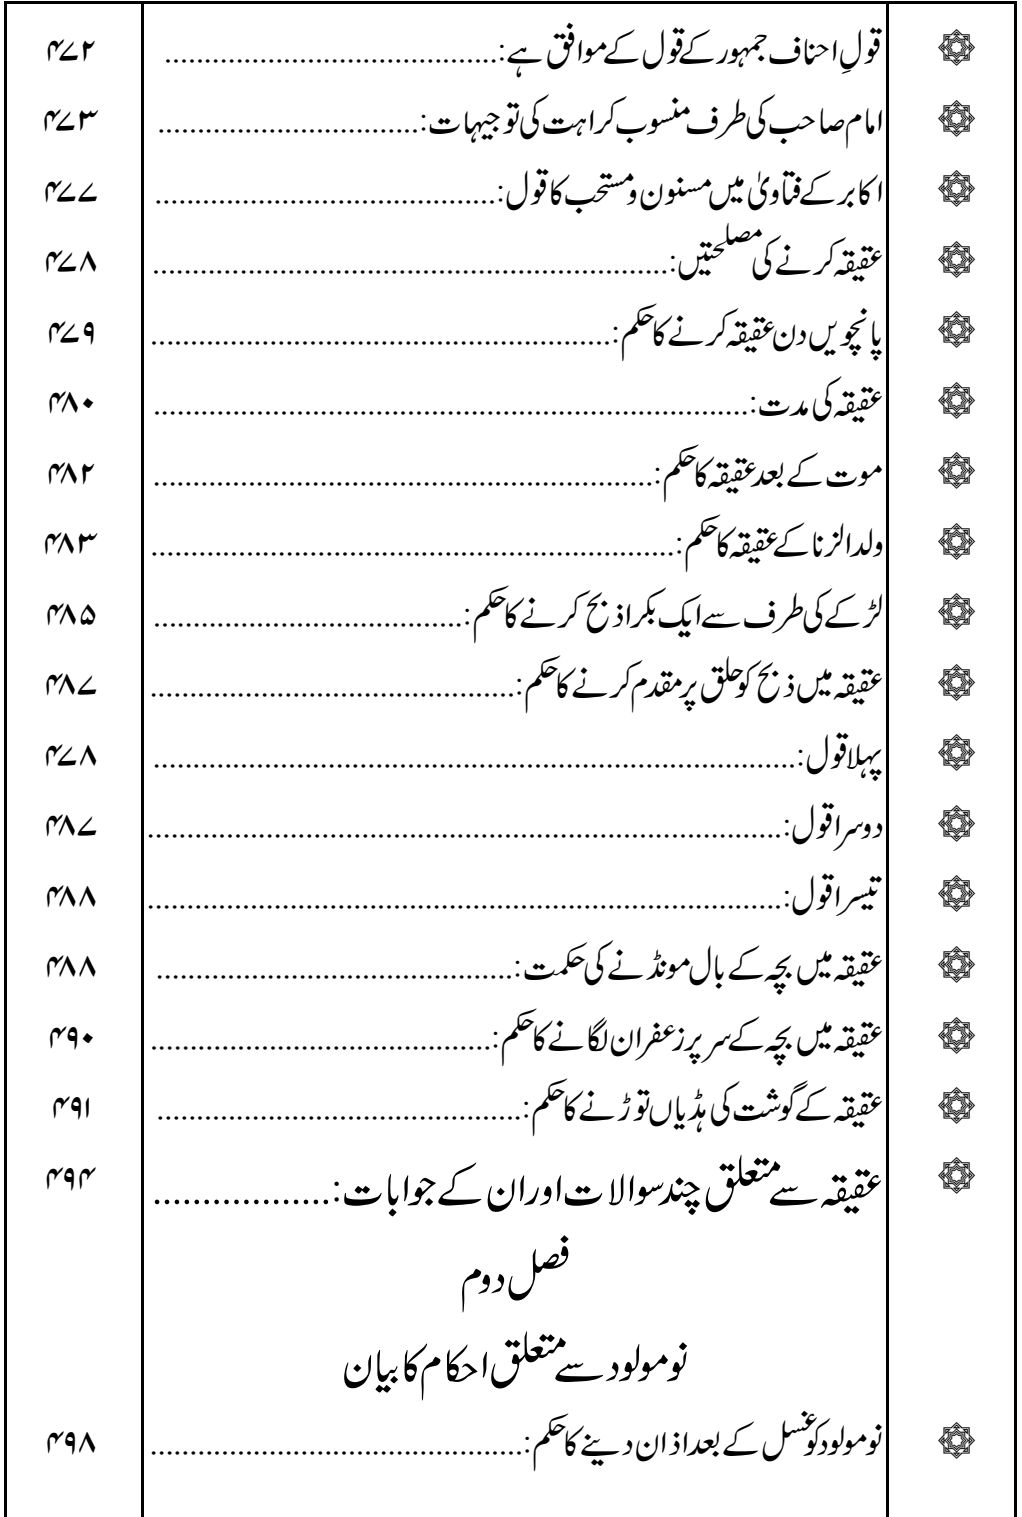 قولِ احناف جمہور کے قول کے موافق ہے: ۴۷۲
امام صاحب کی طرف منسوب کراہت کی توجیہات: ۴۷۳
اکابر کے فتاویٰ میں مسنون ومستحب کا قول: ۴۷۷
عقیقہ کرنے کی مصلحتیں: ۴۷۸
پانچویں دن عقیقہ کرنے کا حکم: ۴۷۹
عقیقہ کی مدت: ۴۸۰
موت کے بعد عقیقہ کا حکم: ۴۸۲
ولد الزنا کے عقیقہ کا حکم: ۴۸۳
لڑکے کی طرف سے ایک بکرا ذبح کرنے کا حکم: ۴۸۵
عقیقہ میں ذبح کو حلق پر مقدم کرنے کا حکم: ۴۸۷
پہلا قول: ۴۷۸
دوسرا قول: ۴۸۷
تیسرا قول: ۴۸۸
عقیقہ میں بچہ کے بال مونڈنے کی حکمت: ۴۸۸
عقیقہ میں بچہ کے سر پر زعفران لگانے کا حکم: ۴۹۰
عقیقہ کے گوشت کی ہڈیاں توڑنے کا حکم: ۴۹۱
عقیقہ سے متعلق چند سوالات اور ان کے جوابات: ۴۹۴
فصل دوم
نومولود سے متعلق احکام کا بیان
نومولود کو غسل کے بعد اذان دینے کا حکم: ۴۹۸